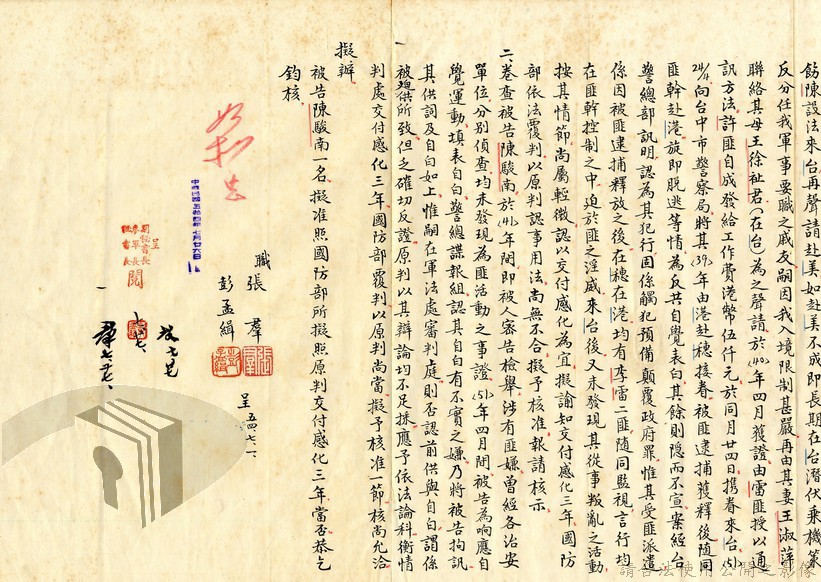 飭陳設法來台再聲請赴美如赴美不成即長期在台潛伏乘機策
反分任我軍事要職之戚友嗣因我入境限制甚嚴再由其妻王淑萍
聯絡其母王徐祉君(在台)為之聲請於(40)年四月獲證由雷匪授以通
訊方法許匪自成發給工作費港幣伍仟元於同月廿四日携眷來台(51)
24/4向台中市警察局將其(39)年由港赴穗接眷被匪逮捕獲釋後隨同
匪幹赴港旋即脫逃等情為反共自覺表白其餘則隱而不宣案經台
警總部訊明認為其犯行固係觸犯預備顛覆政府罪惟其受匪派遣
係因被匪逮捕釋放之後在穗在港均有李雷二匪隨同監視言行均
在匪幹控制之中迫於匪之淫威來台後又未發現其從事叛亂之活動
按其情節尚屬輕微認以交付感化為宜擬諭知交付感化三年國防
部依法覆判以原判認事用法尚無不合擬予核准報請核示
二、卷查被告陳駿南於(41)年間即被人密告檢舉涉有匪嫌曾經各治安
單位分別偵查均未發現為匪活動之事證(51)年四月間被告為响應自
覺運動填表自白警總諜報組認其自白有不實之嫌乃將被告拘訊
其供詞及自白如上惟嗣在軍法處審判庭則否認前供與自白謂係
被迫供所致但乏確切反證原判以其辯論均不足採應予依法論科衡情
判處交付感化三年國防部覆判以原判尚當擬予核准一節核尚允洽
擬辦
被告陳駿南一名擬准照國防部所擬照原判交付感化三年當否恭乞
鈞核
職張羣
彭孟緝
呈 五四七、一、
如擬
中華民國五拾四年七月廿六日
呈
閱
請合法使用公開之影像